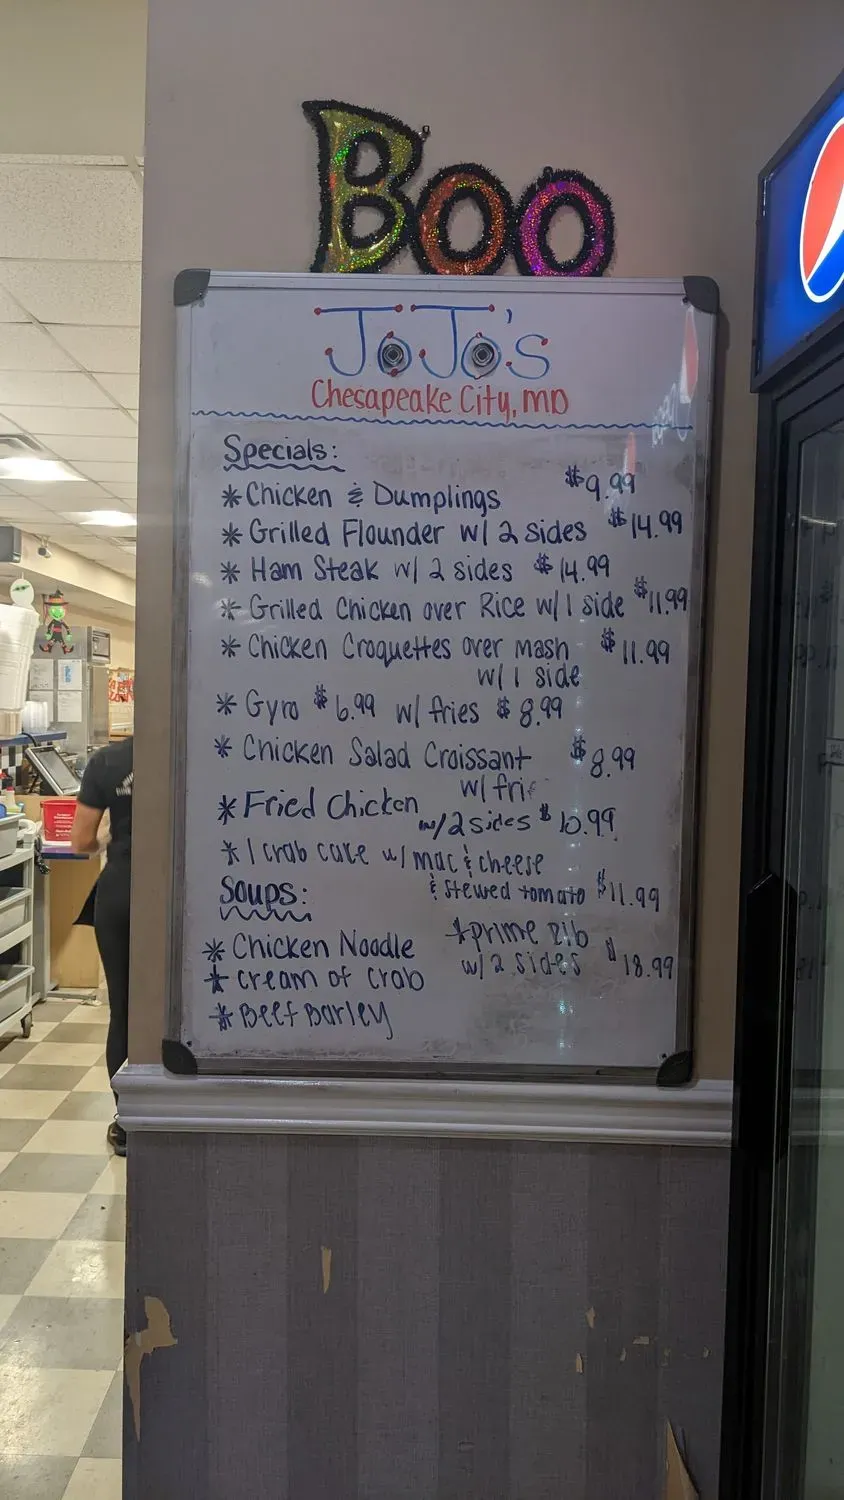 Boo
JoJo's
Chesapeake City, MD
Specials:
* Chicken & Dumplings $9.99
* Grilled Flounder w/ 2 sides $14.99
* Ham Steak w/ 2 sides $14.99
* Grilled Chicken over Rice w/ 1 side $11.99
* Chicken Croquettes over mash $11.99
w/ 1 side
* Gyro $6.99 w/ fries $8.99
* Chicken Salad Croissant $8.99
w/ frie
* Fried Chicken
w/ 2 sides $10.99
* 1 crab cake w/ mac & cheese
& stewed tomato $11.99
Soups:
* Chicken Noodle
* cream of crab
* Beef Barley
* prime Rib
w/ 2 sides $18.99